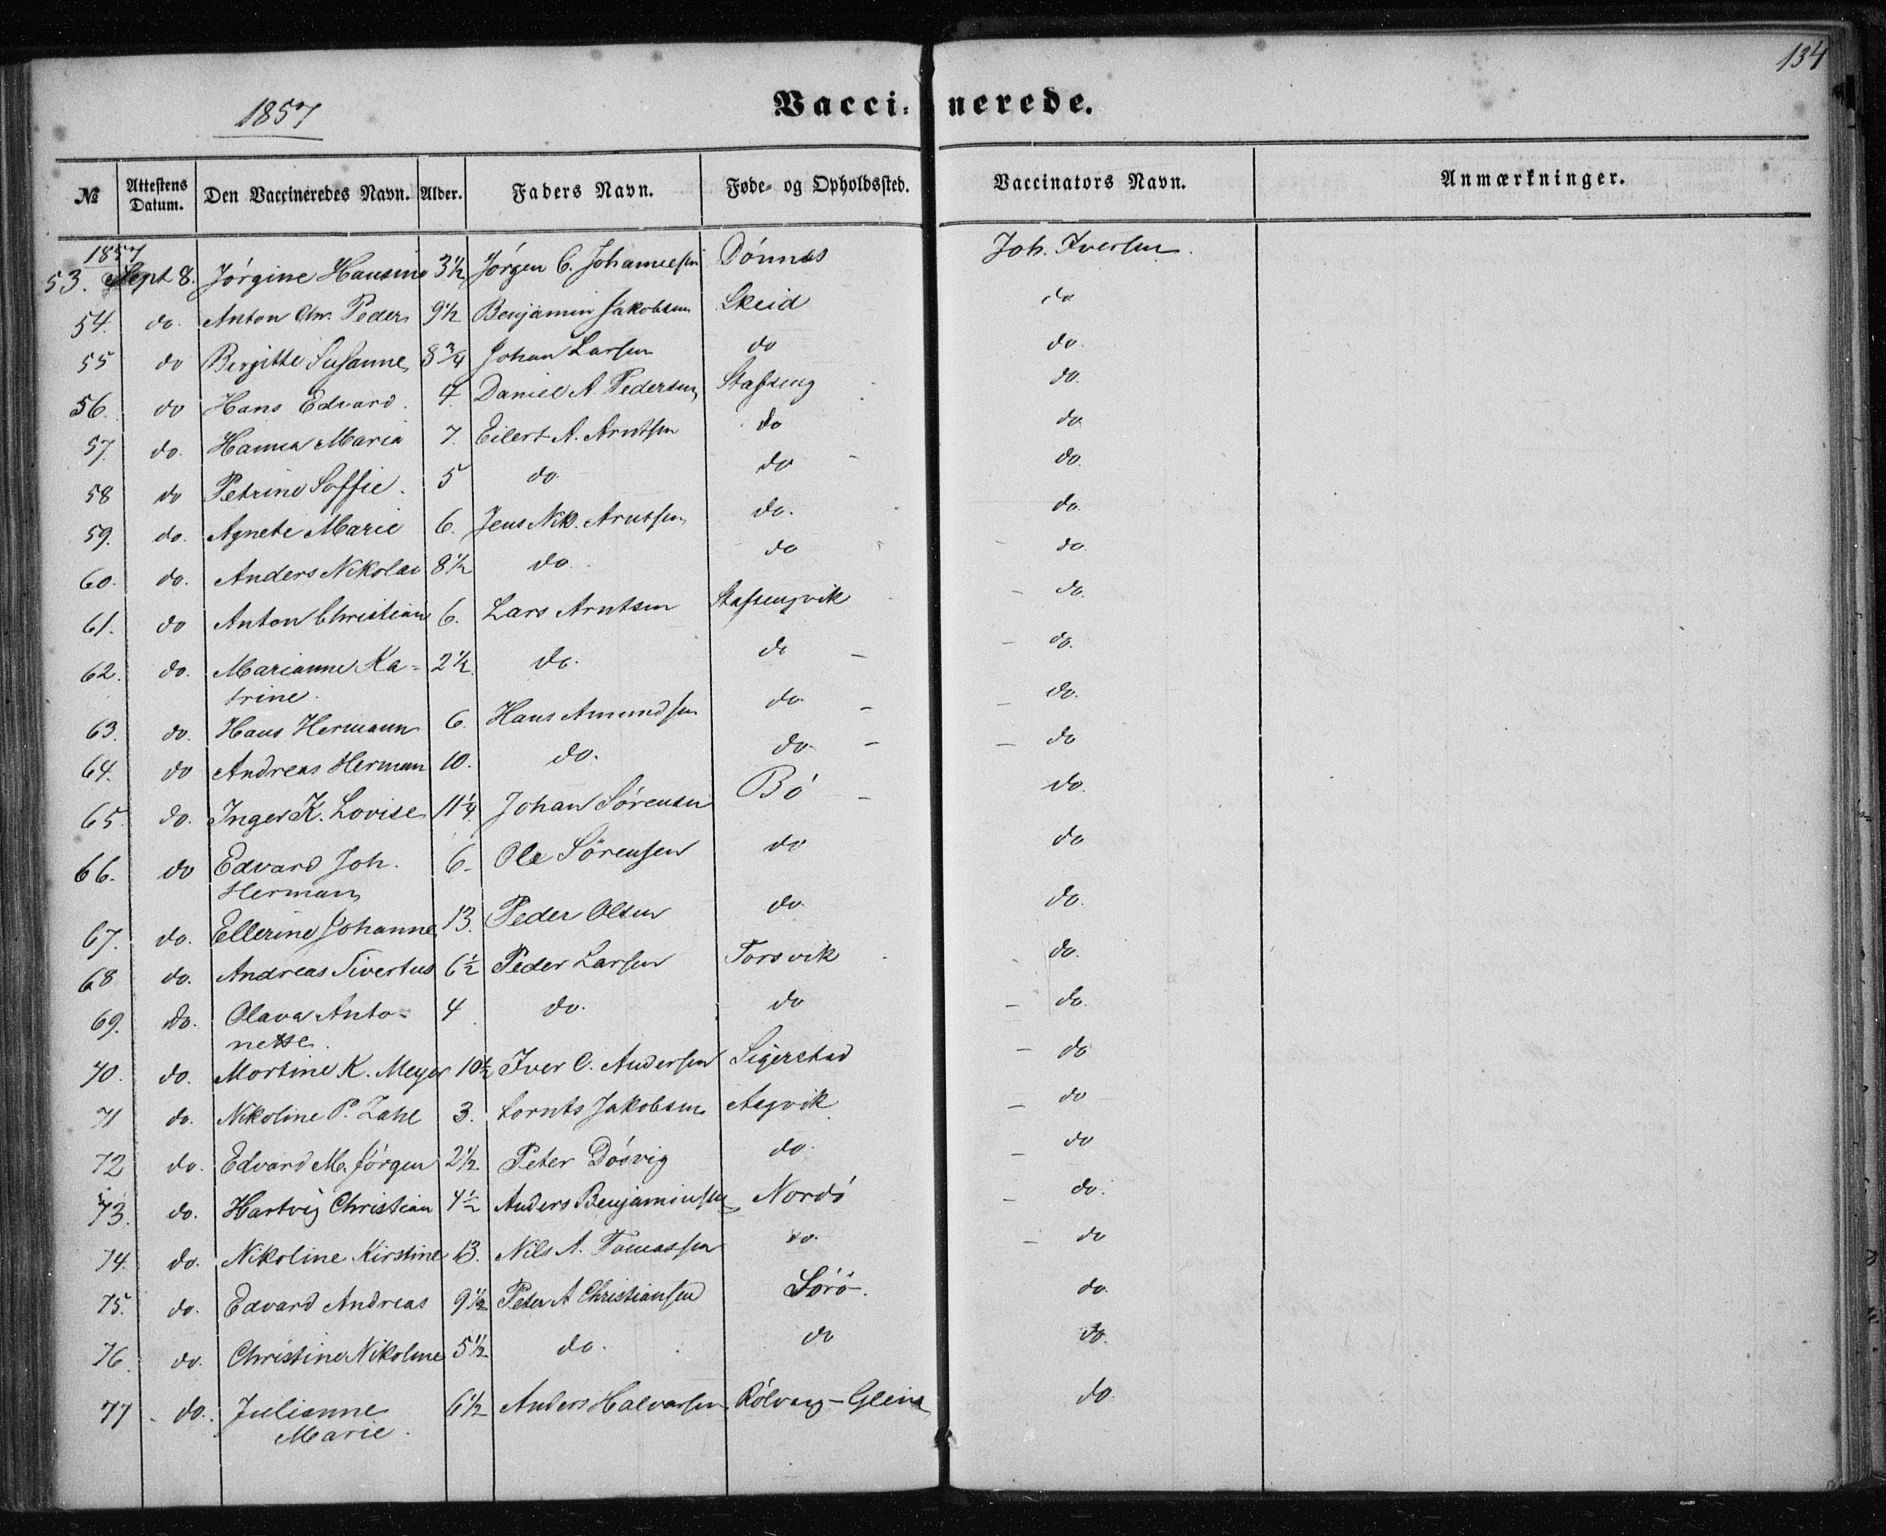 134
1857
Vaccinerede.
№ Attestens Datum. Den Vaccineredes Navn. Alder. Faders Navn. Føde- og Opholdssted. Vaccinators Navn. Anmærkninger.
1857
53. Sept 8. Jørgine Hansine 3½ Jørgen C. Johannesen Dønnes Joh. Iversen.
54. do. Anton Chr. Peder 9½ Benjamin Jakobsen Skeid do
55 do Birgitte Susanne 8¾ Johan Larsen do do.
56. do Hans Edvard. 4. Daniel A. Pedersen Stafseng do.
57. do. Hanna Maria 7. Eilert A. Arntsen do do
58 do Petrine Soffie. 5 do. do do.
59. do. Agnete Marie 6. Jens Nik. Arntsen do. do.
60. do. Anders Nikolai 8½ do. do do.
61. do Anton Christian 6. Lars Arntsen Stafsengvik do.
62. do. Marianne Ka- 2½. do. do do.
trine.
63. do. Hans Hermann 6. Hans Amundsen do do.
64. do Andreas Herman 10. do. do. do
65. do. Inger K. Lovise 11¼ Johan Sørensen Bø do.
66. do Edvard Joh. 6. Ole Sørensen do do
Herman
67. do. Ellerine Johanne 13. Peder Olsen do. do.
68 do. Andreas Sivertus 6½ Peder Larsen Torsvik do.
69. do. Olava Anto- 4 do. do do.
nette.
70. do. Mortine K. Meyer 10½ Iver C. Andersen Sigerstad do
71 do. Nikoline P. Zahl 3. Lornts Jakobsen Aagvik do
72 do. Edvard M. Jørgen 2½ Peter Døsvig do. do
73. do. Hartvig Christian 4½ Anders Benjaminsen Nordø do.
74. do. Nikoline Kirstine 13. Nils A. Tomassen do. do
75. do. Edvard Andreas 9½ Peter A Christiansen Sørø. do.
76. do. Christine Nikoline 5½ do. do do.
77 do. Julianne 6½ Anders Halvorsen Rølvaag - Glein do.
Marie.